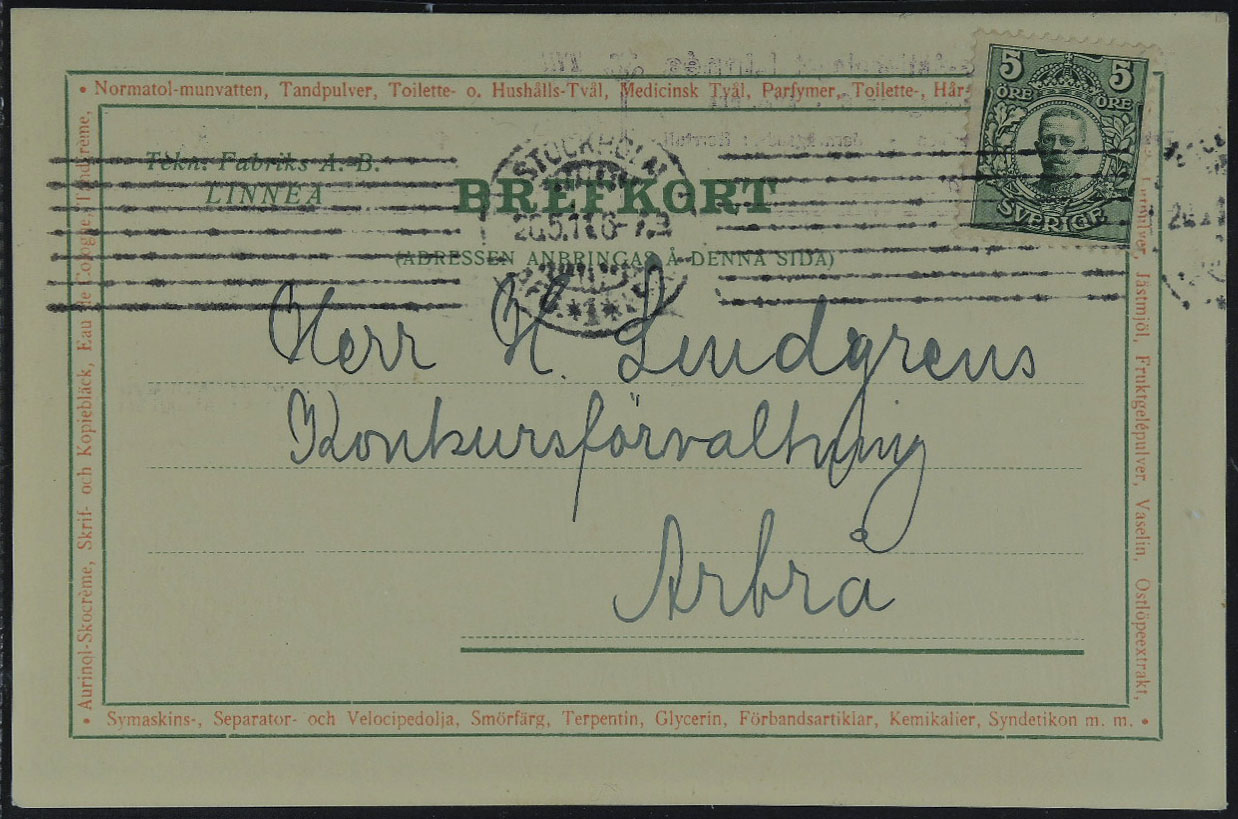 • Normatol-munvatten, Tandpulver, Toilette- o. Hushålls-Tvål, Medicinsk Tvål, Parfymer, Toilette-, Hår-
5 5
ÖRE ÖRE
SVERIGE
Tekn. Fabriks A.-B.
LINNEA
BREFKORT
STOCKHOLM
20.5.11
*1*
(ADRESSEN ANBRINGAS Å DENNA SIDA)
Herr H. Lindgrens
Konkursförvaltning
Arbrå
Jästmjöl, Fruktgelépulver, Vaselin, Ostlöpeextrakt,
• Aurinol-Skocrème, Skrif- och Kopiebläck, Eau de Cologne, Tandcrème,
• Symaskins-, Separator- och Velocipedolja, Smörfärg, Terpentin, Glycerin, Förbandsartiklar, Kemikalier, Syndetikon m. m. •